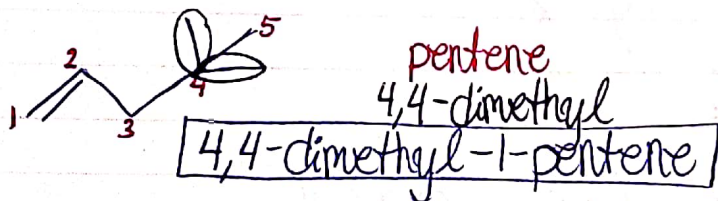 5
2
pentene
4
4,4-dimethyl
1
3
4,4-dimethyl-1-pentene